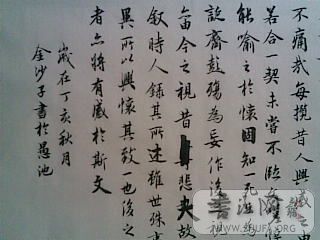 不痛哉每攬昔人興感之由
若合一契未嘗不臨文嗟
能喻之於懷固知一死生
誕齊彭殤為妄作後
由今之視昔悲夫故
叙時人錄其所述雖世殊事
異所以興懷其致一也後之
者亦將有感於斯文
歲在丁亥秋月
金沙子書於愚池